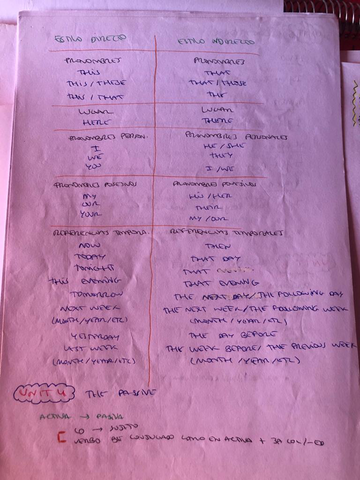 ESTILO DIRECTO ESTILO INDIRECTO
PRONOMBRES PRONOMBRES
THIS THAT
THIS / THESE THAT / THOSE
THIS / THAT THE
LUGAR LUGAR
HERE THERE
PRONOMBRES PERSON. PRONOMBRES PERSONALES
I HE / SHE
WE THEY
YOU I / WE
PRONOMBRES POSESIVOS PRONOMBRES POSESIVOS
MY HIS / HER
OUR THEIR
YOUR MY / OUR
REFERENCIAS TEMPORA. REFERENCIAS TEMPORALES
NOW THEN
TODAY THAT DAY
TONIGHT THAT
THIS EVENING THAT EVENING
TOMORROW THE NEXT DAY / THE FOLLOWING DAY
NEXT WEEK THE NEXT WEEK / THE FOLLOWING WEEK
(MONTH / YEAR / ETC) (MONTH / YEAR / ETC)
YESTERDAY THE DAY BEFORE
LAST WEEK THE WEEK BEFORE / THE PREVIOUS WEEK
(MONTH / YEAR / ETC) (MONTH / YEAR / ETC)
UNIT 4 THE PASSIVE
ACTIVA → PASIVA
CD → SUJETO
VERBO BE CONJUGADO COMO EN ACTIVA + 3A COL / -ED